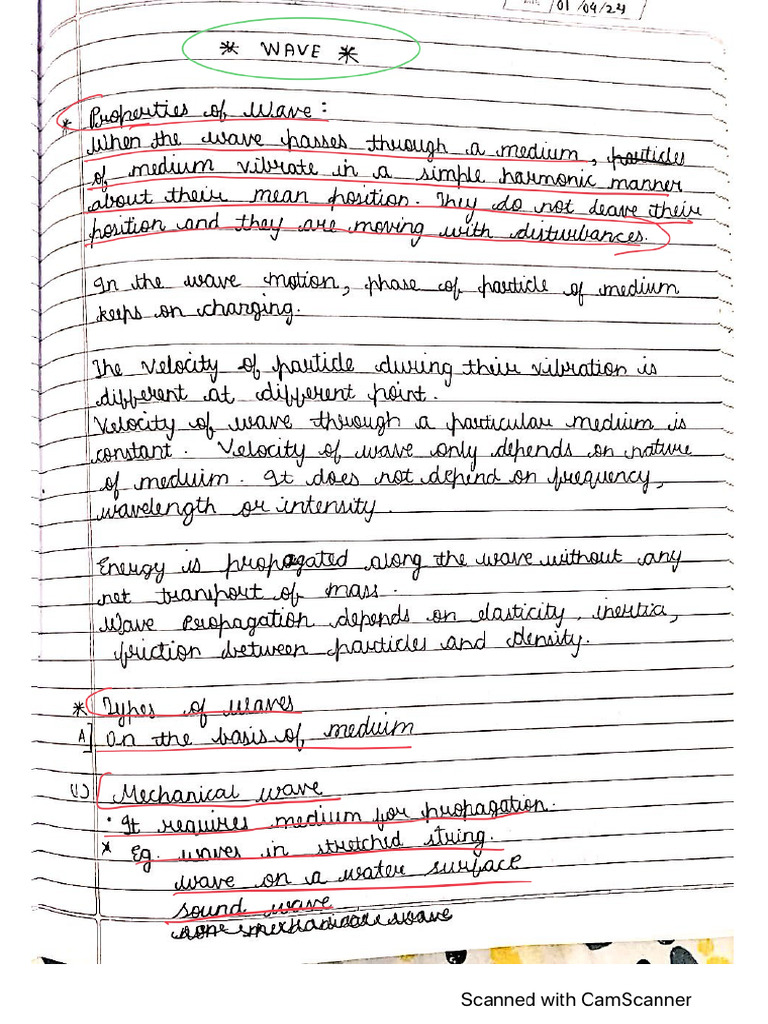 01/04/24
* WAVE *
* Properties of Wave :
When the wave passes through a medium, particles
of medium vibrate in a simple harmonic manner
about their mean position. They do not leave their
position and they are moving with disturbances.
In the wave motion, phase of particle of medium
keeps on charging.
The velocity of particle during their vibration is
different at different point.
Velocity of wave through a particular medium is
constant. Velocity of wave only depends on nature
of meduim. It does not depend on frequency,
wavelength or intensity.
Energy is propagated along the wave without any
net transport of mass.
Wave Propagation depends on elasticity, inertia,
friction between particles and density.
* Types of waves
A] On the basis of meduim
(1) Mechanical wave
· It requires medium for propagation.
* Eg. waves in stretched string.
wave on a water surface
sound wave
none mechanical wave
Scanned with CamScanner